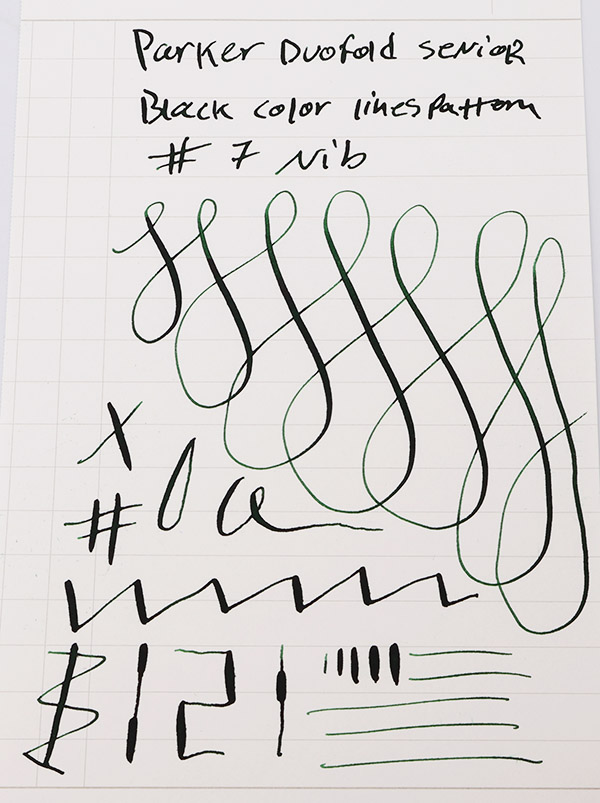 Parker Duofold senior
Black color lines pattern
# 7 Nib
x
# 0 a
$ 1 2 1